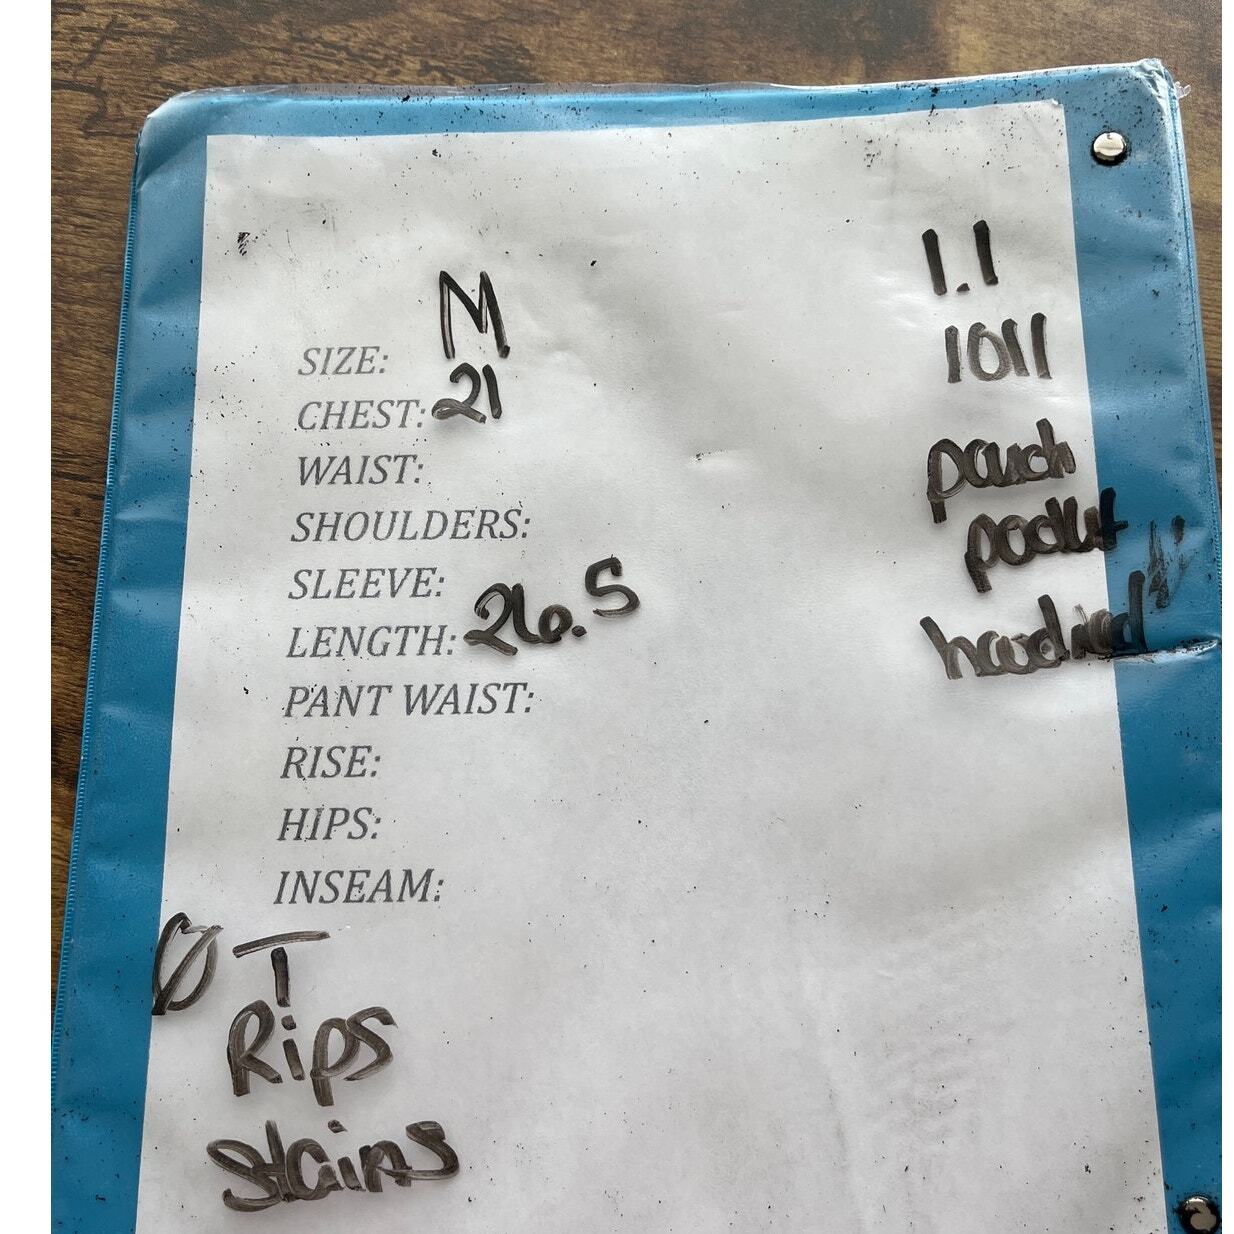 1.1
1011
pouch
pocket
hooded
SIZE: M
CHEST: 21
WAIST:
SHOULDERS:
SLEEVE:
LENGTH: 26.5
PANT WAIST:
RISE:
HIPS:
INSEAM:
Ø T
Rips
Stains